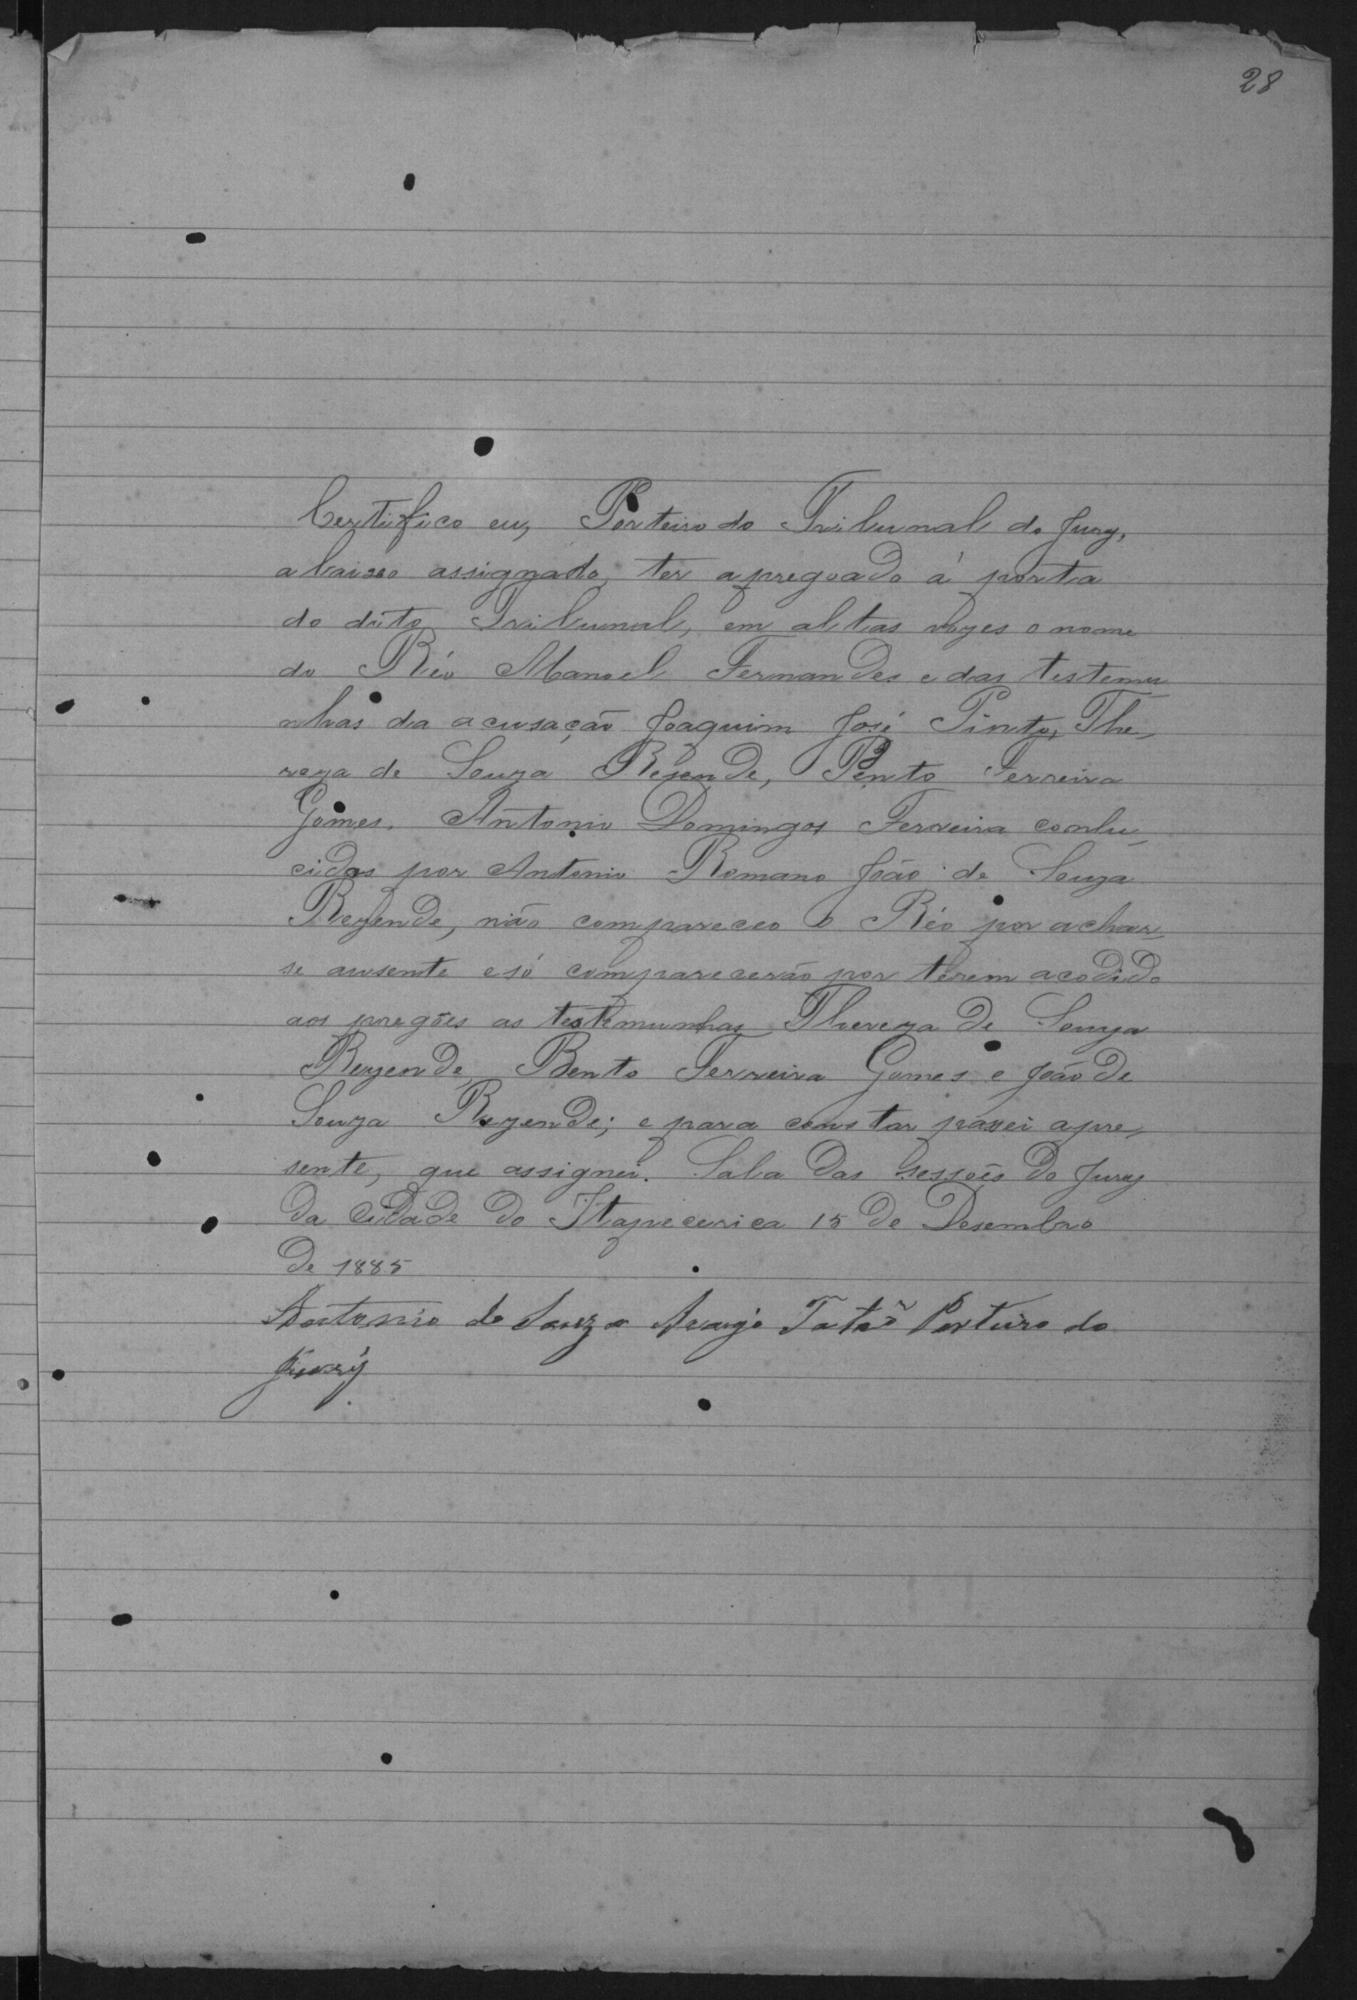 28
Certifico eu, Porteiro do Tribunal do Jury,
abaixo assignado, ter apregoado á porta
do dito Tribunal, em altas vozes o nome
do Réo Manoel Fernandes e das testemu
nhas da acusação Joaquim José Pinto, The-
reza de Souza Resende, Bento Ferreira
Gomes, Antonio Domingos Ferreira conhe-
cidos por Antonio Romano João de Souza
Rezende, não compareceo o Réo por achar-
se ausente e só comparecerão por terem acodido
aos pregões as testemunhas Thereza de Souza
Rezende, Bento Ferreira Gomes e João de
Souza Rezende; e para constar passei a pre-
sente, que assignei. Sala das sessões do Jury
da Cidade do Itapecerica 15 de Desembro
de 1885
Antonio de Souza Araujo Porteiro do
Jury